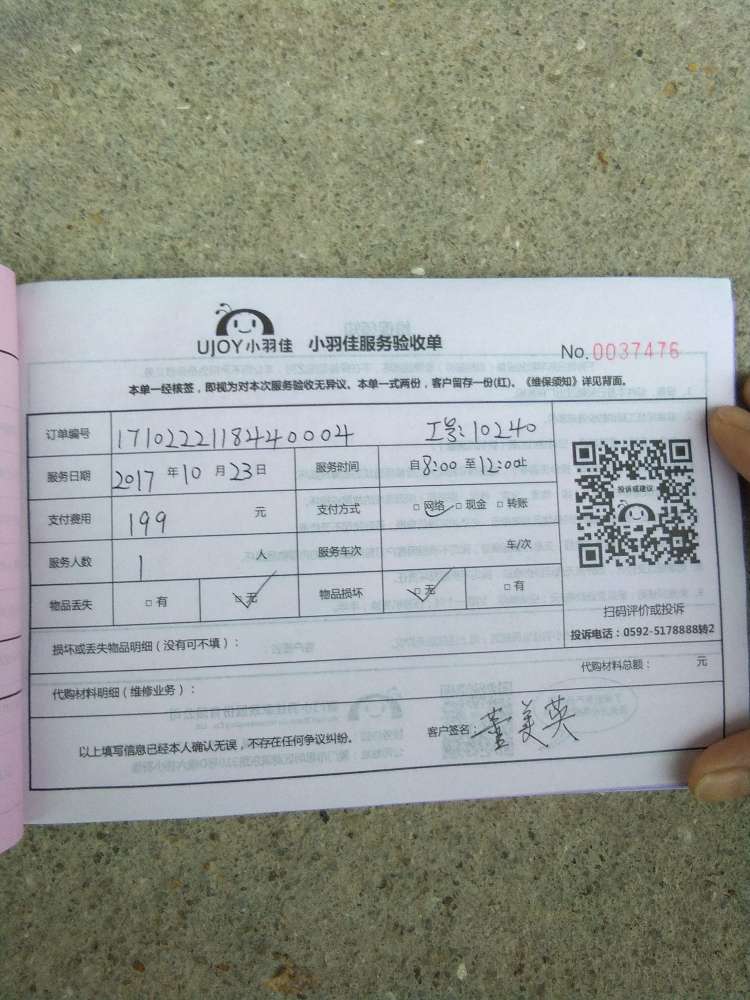 UJOY小羽佳 小羽佳服务验收单 No.0037476
本单一经核签，即视为对本次服务验收无异议。本单一式两份，客户留存一份(红)。《维保须知》详见背面。
订单编号 1710222118440004 工号:10240
服务日期 2017 年 10 月 23 日 服务时间 自8:00 至 12:00止
支付费用 199 元 支付方式 □ 网络 □ 现金 □ 转账
服务人数 1 人 服务车次 车/次
物品丢失 □ 有 □ 无 物品损坏 □ 无 □ 有
投诉或建议
扫码评价或投诉
投诉电话：0592-5178888转2
损坏或丢失物品明细（没有可不填）：
代购材料明细（维修业务）： 代购材料总额： 元
以上填写信息已经本人确认无误，不存在任何争议纠纷。 客户签名：董美英